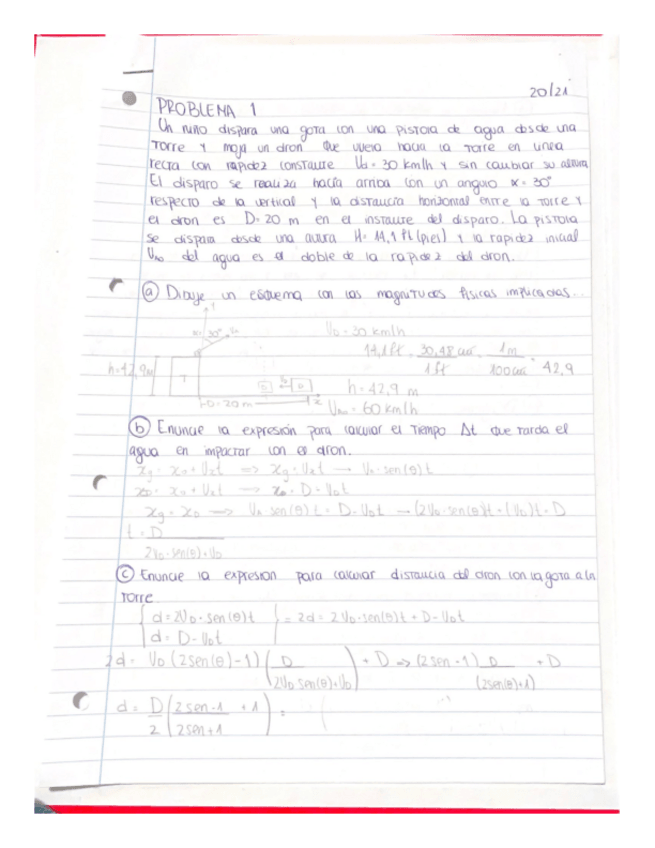 20/21
PROBLEMA 1
Un niño dispara una gota con una pistola de agua desde una
torre y moja un dron que vuela hacia la torre en línea
recta con rapidez constante Vd = 30 km/h y sin cambiar su altura
El disparo se realiza hacía arriba con un angulo α = 30°
respecto de la vertical y la distancia horizontal entre la torre y
el dron es D = 20 m en el instante del disparo. La pistola
se dispara desde una altura H = 14,1 ft (pies) y la rapidez inicial
del agua es el doble de la rapidez del dron.
(a) Dibuje un esquema con las magnitudes físicas implicadas...
30° V₀
V_D = 30 km/h
14,1 ft · 30,48 cm / 1 ft · 1 m / 100 cm = 42,9
h = 42,9 m
T
h = 42,9 m
D = 20 m x
= 60 km/h
(b) Enuncie la expresión para calcular el tiempo Δt que tarda el
agua en impactar con el dron.
x_g = x₀ + V_x t => x_g = V_x t → · sen(θ) t
x_D = x₀ + V_x t → x_D = D - V_D t
x_g = x_D → sen(θ) t = D - V_D t → (2V_D · sen(θ))t + (V_D)t = D
t = D / 2V_D · sen(θ) + V_D
(c) Enuncie la expresión para calcular distancia del dron con la gota a la
torre.
{ d = 2V_D · sen(θ) t } = 2d = 2V_D · sen(θ) t + D - V_D t
{ d = D - V_D t
2d = V_D (2sen(θ) - 1) ( D / 2V_D sen(θ) + V_D ) + D => (2sen - 1) D / (2sen(θ) + 1) + D
d = D / 2 ( 2sen - 1 / 2sen + 1 + 1 ) =